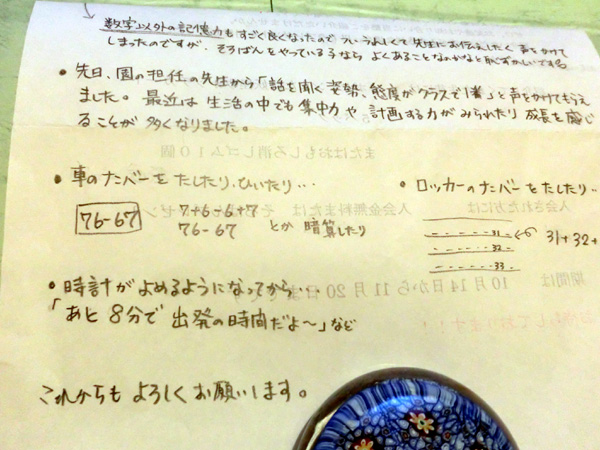 数字以外の記憶力もすごく良くなったので ついうれしくて先生にお伝えしたく 声をかけて
しまったのですが、そろばんをやっている子なら よくあることなのかなと恥ずかしいです
• 先日、園の担任の先生から「話を聞く姿勢、態度がクラスで1番」と声をかけてもらえ
ました。最近は生活の中でも集中力や計画する力がみられたり成長を感じ
ることが多くなりました。
• 車のナンバーをたしたり、ひいたり…
76-67
7+6-6+7
76-67 とか 暗算したり
• ロッカーのナンバーをたしたり…
31
32
33
31+32+
• 時計がよめるようになってから…
「あと8分で出発の時間だよ〜」など
これからもよろしくお願いします。